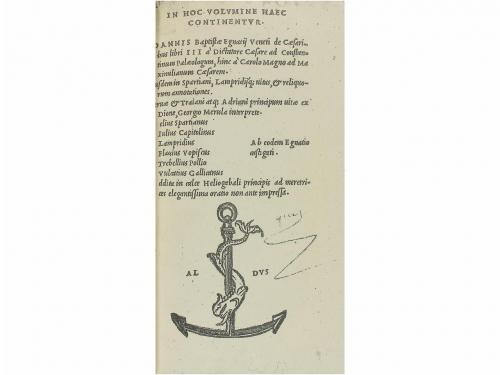 IN HOC VOLVMINE HAEC
CONTINENTVR.
OANNIS Baptistæ Egnatij Veneti de Cæsari-
bus libri III à Dictatore Cæsare ad Constan-
tinum Palæologum, hinc à Carolo Magno ad Ma
ximilianum Cæsarem.
usdem in Spartiani, Lampridijq; uitas, & reliquo-
rum annotationes.
ruæ & Traiani atq; Adriani principum uitæ ex
Dione, Georgio Merula interprete.
elius Spartianus
Iulius Capitolinus
Lampridius Ab eodem Egnatio
Flauius Vopiscus castigati.
Trebellius Pollio
Vulcatius Gallicanus
ddita in calce Heliogabali principis ad meretri-
ces elegantissima oratio non ante impressa.
AL DVS